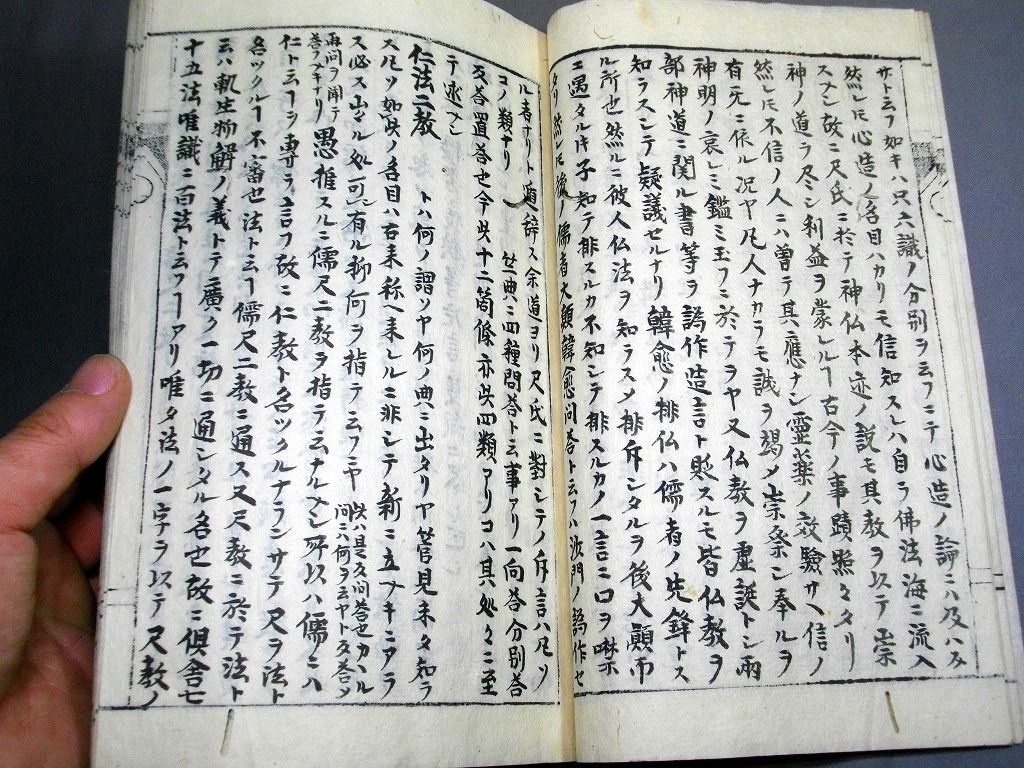 サト云フ如キハ只六識ノ分別ヲ云フニテ心造ノ論ニハ及ハス
然レモ心造ノ名目ハカリモ信知スレハ自ラ佛法海ニ流入
スヘシ故ニ尺氏ニ於テ神仏本迹ノ説モ其教ヲ以テ崇
神ノ道ヲ尽シ利益ヲ蒙レルヿ古今ノ事蹟照々タリ
然レモ不信ノ人ニハ曽テ其應ナシ靈薬ノ效驗サヘ信ノ
有无ニ依ル况ヤ凡人ナカラモ誠ヲ竭メ崇奉シ奉ルヲ
神明ノ哀レミ鑑ミ玉フニ於テヲヤ又仏教ヲ虚誕トシ兩
部神道ニ関ル書等ヲ偽作造言ト貶スルモ皆仏教ヲ
知ラスシテ疑議セルナリ韓愈ノ排仏ハ儒者ノ先鋒トス
ル所也然ルニ彼人仏法ヲ知ラスメ排斥シタルヲ後大顛
ニ遇タル時子知テ排スルカ不知シテ排スルカノ一言ニ口ヲ
タリ然レモ後ノ儒者大顛韓愈問答ト云フハ沙門ノ偽作セ
ル者ナリト遁辞ス余道ヨリ尺氏ニ對シテノ斥言ハ凡ソ
コノ類ナリ 竺典ニ四種問答ト云事アリ一向答分別答
反答置答也今此十二箇條亦此四類アリコハ其処々ニ至
テ述ヘシ
仁法二教 トハ何ノ謂ソヤ何ノ典ニ出タリヤ菅見未タ知ラ
ス凡ソ如此ノ名目ハ古来称ヘ来レルニ非シテ新ニ立フヘキニアラ
ス必ス出ル処可有ル抑何ヲ指テ云フニヤ 此ハ是反問答也カハル問ニハ何ヲ云ヤト反答メ
再問ヲ聞テ答フヘキナリ 愚推スルニ儒尺二教ヲ指テ云ナルヘシ所以ハ儒ニハ
仁ト云ヿヲ専ラ言フ故ニ仁教ト名ツクルナランサテ尺ヲ法ト
名ツクルヿ不審也法ト云ヿ儒尺二教ニ通ス又尺教ニ於テ法ト
云ハ軌生物解ノ義トテ廣ク一切ニ通シタル名也故ニ倶舎七
十五法唯識ニ百法ト云フヿアリ唯タ法ノ一字ヲ以テ尺教ノ